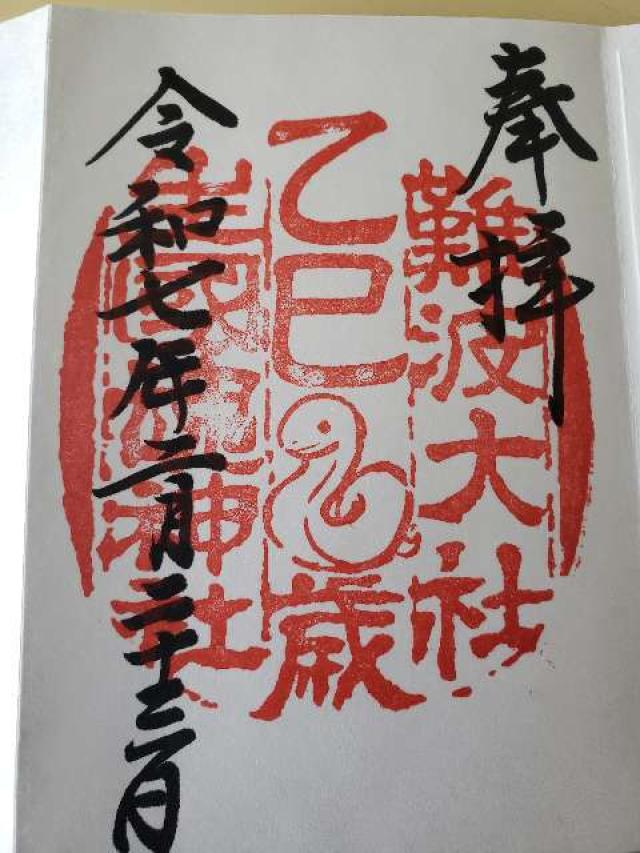 奉拝
難波大社
乙巳歳
生國魂神社
令和七年二月二十三日